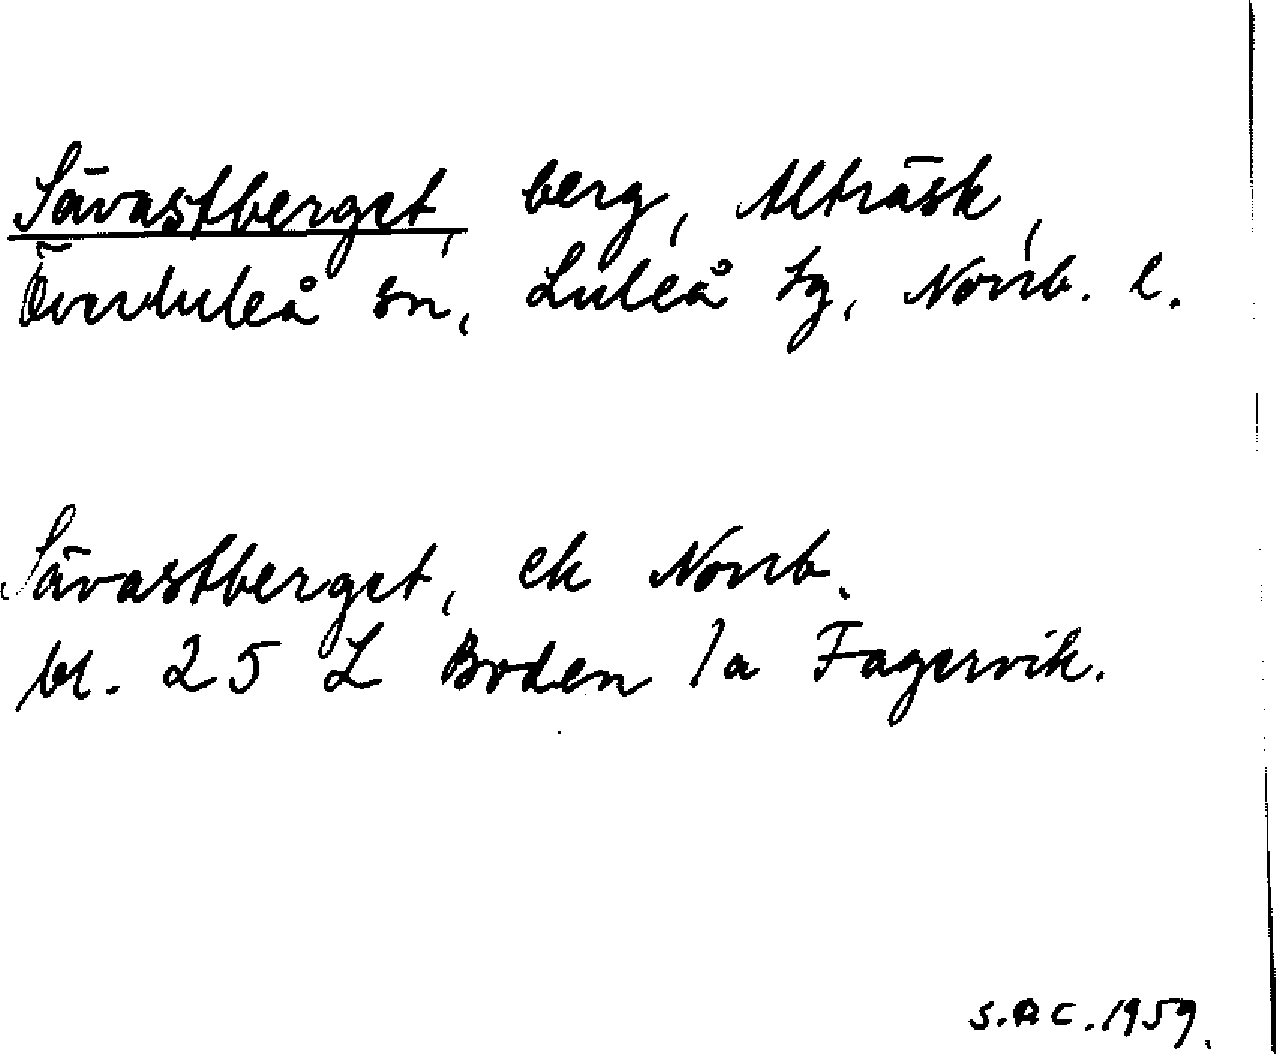 Sävastberget, berg, Alträsk,
Överluleå sn, Luleå tg, Norrb. l.
Sävastberget, ek Norrb.
bl. 25 L Boden 1a Fagervik.
S.A C. 1959.